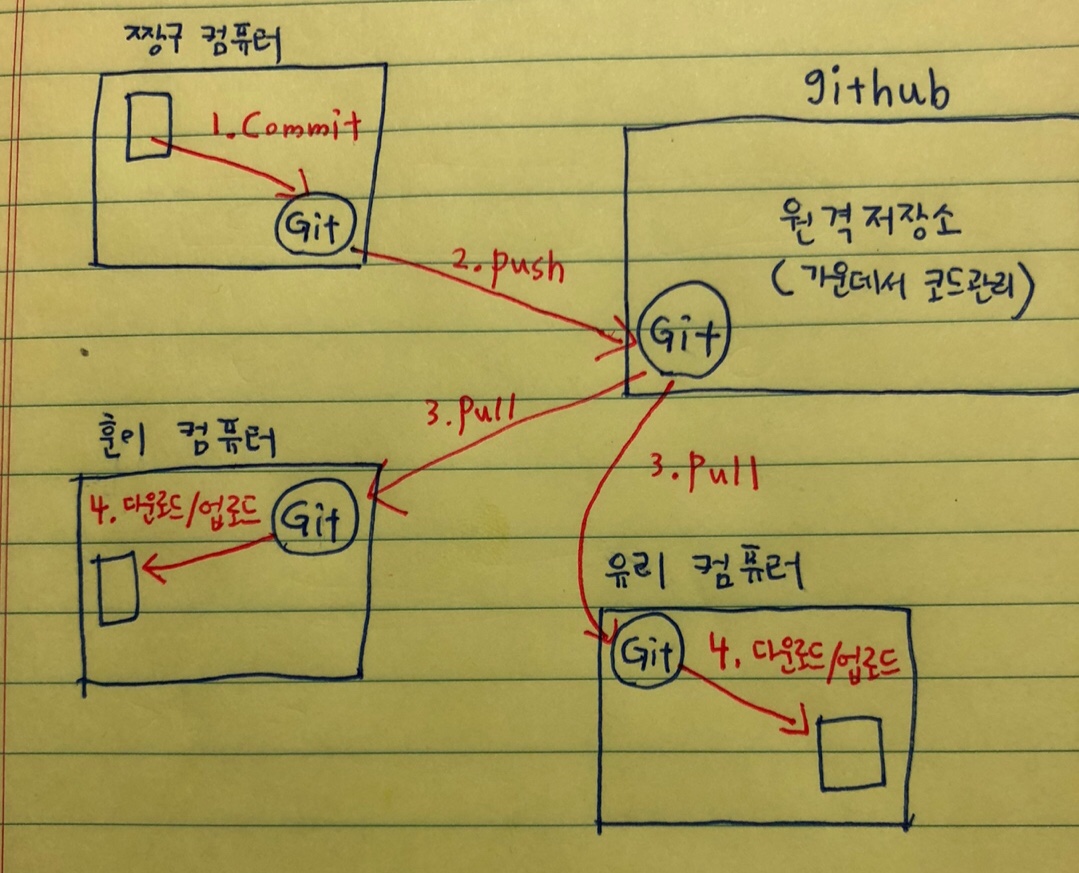 짱구 컴퓨터
1. Commit
Git
2. push
github
원격저장소
(가운데서 코드관리)
Git
3. Pull
3. Pull
훈이 컴퓨터
4. 다운로드/업로드
Git
유리 컴퓨터
Git
4. 다운로드/업로드